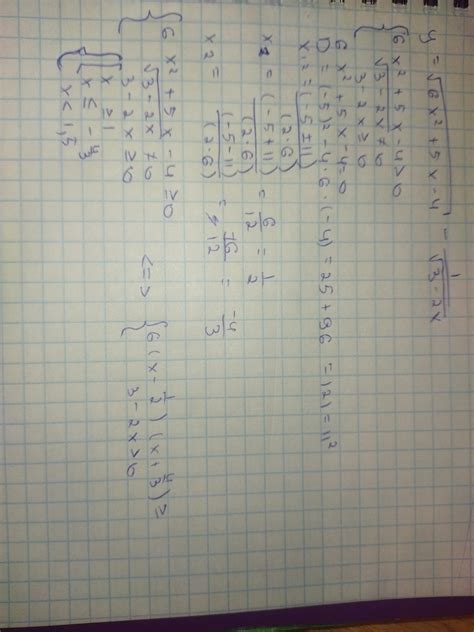 y = √(6x² + 5x - 4) - 1/√(3 - 2x)
{ 6x² + 5x - 4 ≥ 0
√(3 - 2x) ≠ 0
3 - 2x ≥ 0
6x² + 5x - 4 = 0
D = (-5)² - 4 · 6 · (-4) = 25 + 96 = 121 = 11²
x₁,₂ = (-5 ± 11)/(2 · 6)
x₁ = (-5 + 11)/(2 · 6) = 6/12 = 1/2
x₂ = (-5 - 11)/(2 · 6) = -16/12 = -4/3
{ 6x² + 5x - 4 ≥ 0 <=> { 6(x - 1/2)(x + 4/3) ≥
√(3 - 2x) ≠ 0 3 - 2x > 0
3 - 2x ≥ 0
{ [ x ≥ 1
x ≤ -4/3
x < 1,5